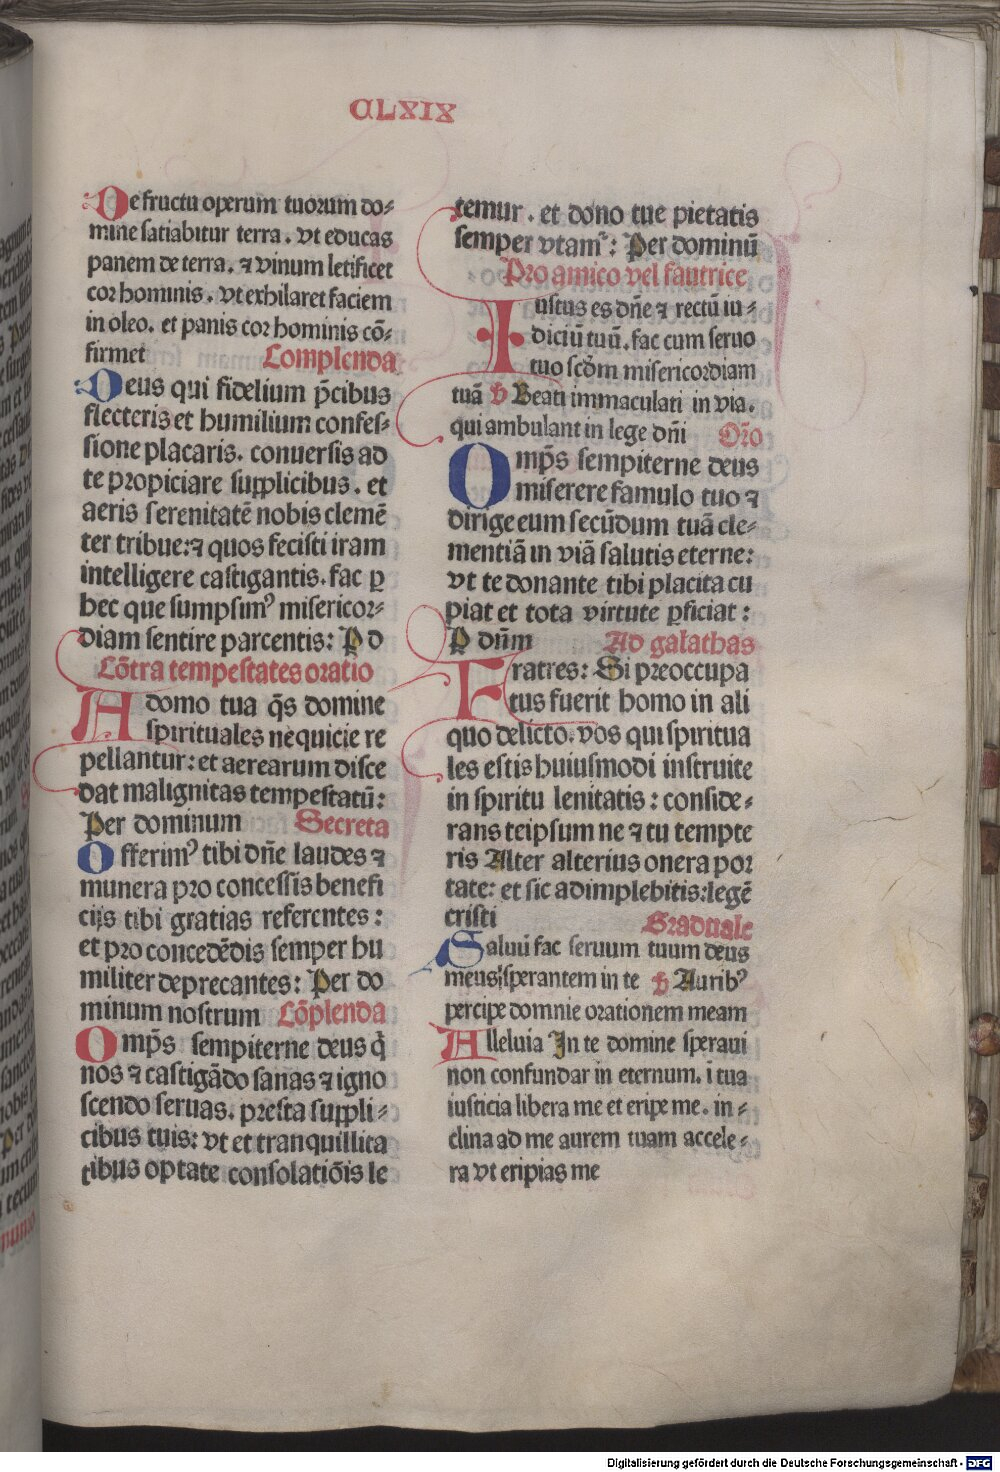 CLXIX
De fructu operum tuorum do⸗
mine satiabitur terra. vt educas
panem de terra. ⁊ vinum letificet
cor hominis. vt exhilaret faciem
in oleo. et panis cor hominis cō⸗
firmet Complenda
Deus qui fidelium p̄cibus
flecteris et humilium confes⸗
sione placaris. conuersis ad
te propiciare supplicibus. et
aeris serenitatē nobis clemē
ter tribue: ⁊ quos fecisti iram
intelligere castigantis. fac ꝑ
hec que sumpsimꝰ misericor⸗
diam sentire parcentis: P d
Cōtra tempestates oratio
A domo tua q̄s domine
spirituales nequicie re
pellantur: et aerearum disce
dat malignitas tempestatū:
Per dominum Secreta
Offerimꝰ tibi dn̄e laudes ⁊
munera pro concessis benefi
cijs tibi gratias referentes:
et pro concedēdis semper hu
militer deprecantes: Per do
minum nostrum Cōplenda
Omp̄s sempiterne deus q̇
nos ⁊ castigādo sanas ⁊ igno
scendo seruas. presta suppli⸗
cibus tuis: vt et tranquillita
tibus optate consolatiōis le
temur. et dono tue pietatis
semper vtamꝰ: Per dominū
Pro amico vel fautrice
Iustus es dn̄e ⁊ rectū iu⸗
diciū tuū. fac cum seruo
tuo scd̄m misericordiam
tuā ℣ Beati immaculati in via.
qui ambulant in lege dn̄i Or̄o
Omp̄s sempiterne deus
miserere famulo tuo ⁊
dirige eum secūdum tuā cle⸗
mentiā in viā salutis eterne:
vt te donante tibi placita cu
piat et tota virtute ꝑficiat:
P dn̄m Ad galathas
Fratres: Si preoccupa
tus fuerit homo in ali
quo delicto. vos qui spiritua
les estis huiusmodi instruite
in spiritu lenitatis: conside⸗
rans teipsum ne ⁊ tu tempte
ris Alter alterius onera por
tate: et sic adimplebitis: legē
cristi Graduale
Saluū fac seruum tuum deus
meus sperantem in te ℣ Auribꝰ
percipe domnie orationem meam
Alleluia In te domine speraui
non confundar in eternum. ī tua
iusticia libera me et eripe me. in⸗
clina ad me aurem tuam accele⸗
ra vt eripias me
Digitalisierung gefördert durch die Deutsche Forschungsgemeinschaft - DFG